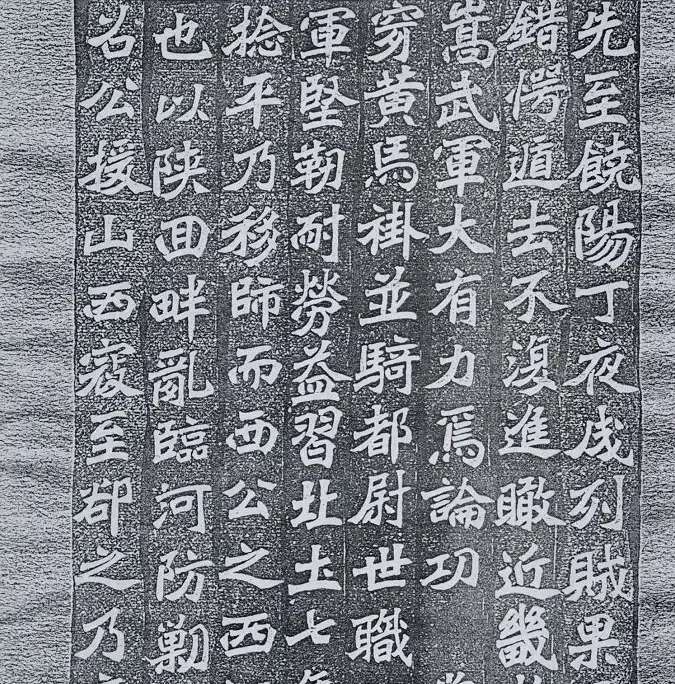 先至饒陽丁夜戌列賊果
錯愕遁去不復進瞰近畿
嵩武軍大有力焉論功
穿黃馬褂並騎都尉世職
軍堅靭耐勞益習北土七
捻平乃移師而西公之西
也以陝回畔亂臨河防勦
名公援山西寇至卻之乃